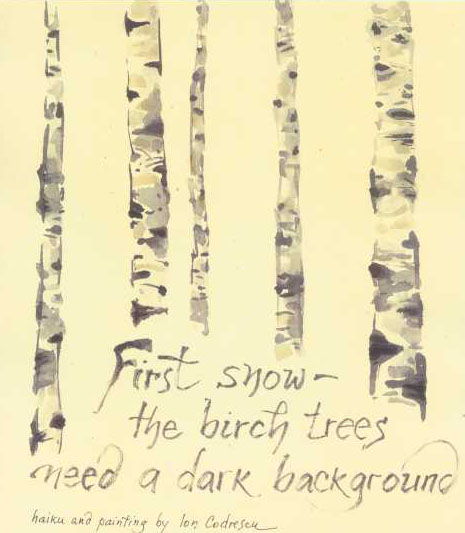 First snow–
the birch trees
need a dark background
haiku and painting by Ion Codrescu